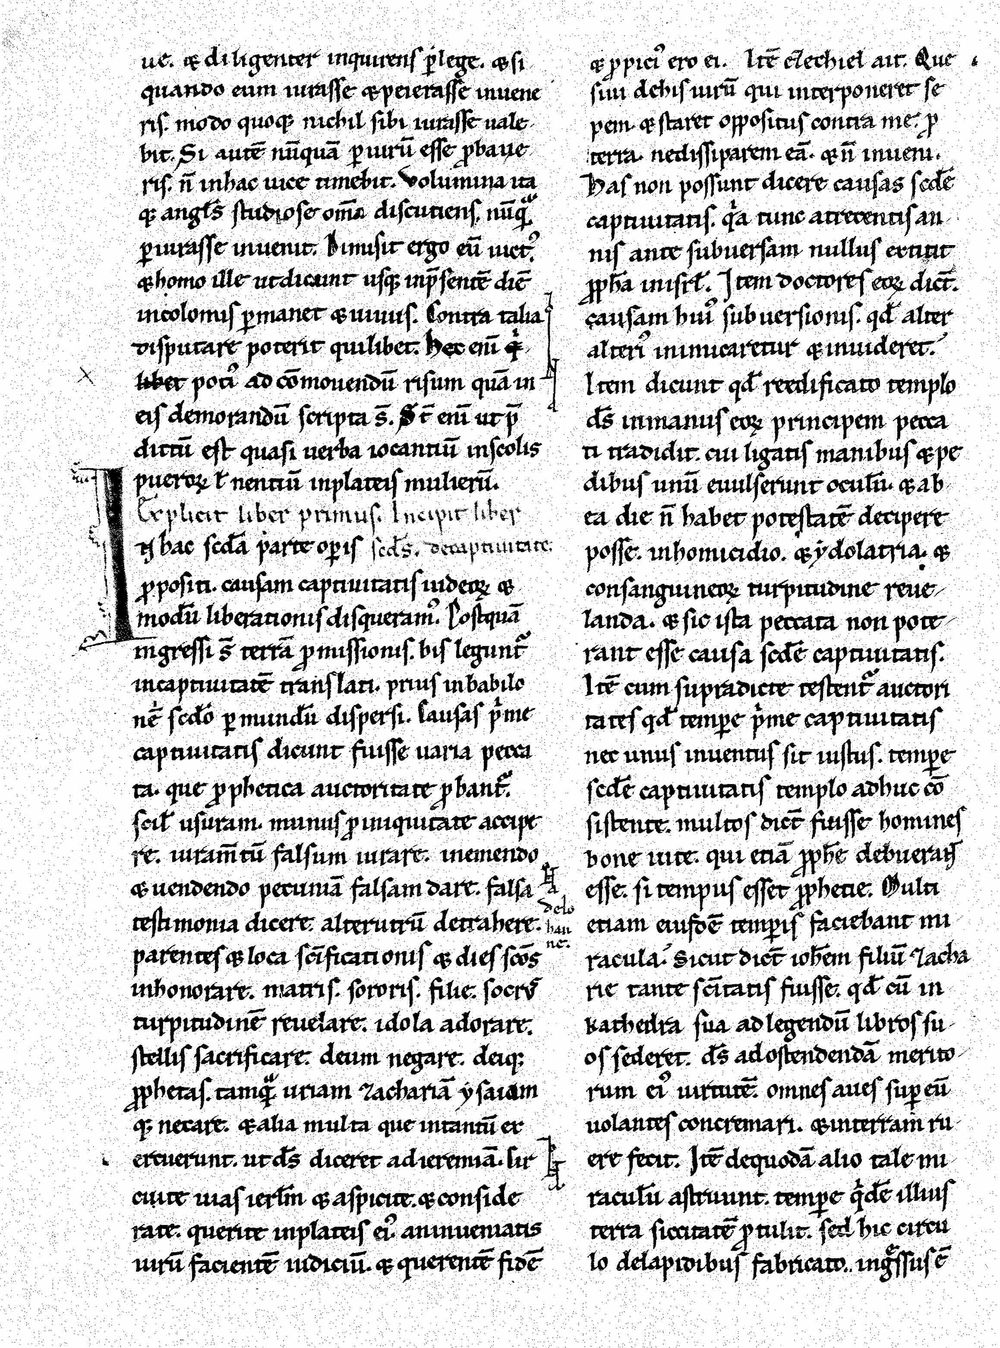 ue. & diligenter inquirens p̄lege. & si
quando eum iurasse & peierasse inuene
ris. modo quoq; nichil sibi iurasse uale
bit. Si autē nūquā p̱iurū esse ꝓbaue
ris. n̄ in hac uice timebit. Volumina ita
q; angl̄s studiose om̄ia discutiens. nūq̄
p̱iurasse inuenit. Dimisit ergo eū uict᷒.
& homo ille ut dicunt usq; inp̄sentē diē
incolomis p̱manet & uiuus. Contra talia
disputare poterit quilibet. Hec eni
pot᷒ ad cōmouendū risum quā in
eis demorandū scripta s̄. St̄ eni ut p̄
dictū est quasi uerba iocantiū inscolis
pueroꝝ ł nentiū inplateis mulierū.
Explicit liber primus. Incipit liber
IN hac scd̄a parte op̱is scd̄s. de captiuitate.
ꝓpositi. causam captiuitatis iudeoꝝ &
modū liberationis disqueram᷒. Postquā
ingressi s̄ terrā ꝓmissionis. bis legunt᷒
incaptiuitatē translati. prius inbabilo
nē scd̄o p̱ mundū dispersi. Causas p̄me
captiuitatis dicunt fuisse uaria pecca
ta. que ꝓphetica auctoritate ꝓbant᷒.
scil̄ usuram. munus ꝓ iniquitate accipe
re. iuram̄tū falsum iurare. inemendo
& uendendo pecuniā falsam dare. falsa
testimonia dicere. alterutrū detrahere.
parentes & loca scīficationis & dies scōs
inhonorare. matris. sororis. filie. socr᷒
turpitudinē reuelare. idola adorare.
stellis sacrificare. deum negare. deiq;
ꝓphetas. tamq̄ uriam zachariā ysaiam
q; necare. & alia multa que intantū ex
creuerunt. ut d̄s diceret ad ieremiā. Cir
cuite uias ierlm̄ & aspicite. & conside
rate. querite inplateis ei᷒. an inueniatis
uirū facientē iudiciū. & querentē fidē
& ꝓpici᷒ ero ei. Itē ezechiel ait. Que
siui de his uirū qui interponeret se
pem. & staret oppositus contra me. ꝓ
terra. ne dissiparem eā. & n̄ inueni.
Has non possunt dicere causas scd̄e
captiuitatis. q̄a tunc a trecentis an
nis ante subuersam nullus extitit
ꝓph̄a in isrl̄. Item doctores eoꝝ dic̄t.
causam hui᷒ subuersionis. qd̄ alter
alteri᷒ inimicaretur & inuideret.
Item dicunt qd̄ reedificato templo
d̄s inmanus eoꝝ principem pecca
ti tradidit. cui ligatis manibus & pe
dibus unū euulserunt oculū. & ab
ea die n̄ habet potestatē decipere
posse. in homicidio. & ydolatria. &
consanguineoꝝ turpitudine reue
landa. & sic ista peccata non pote
rant esse causa scd̄e captiuitatis.
Itē cum supradicte testent᷒ auctori
tates qd̄ temp̱e p̄me captiuitatis
nec unus inuentus sit iustus. temp̱e
scd̄e captiuitatis templo adhuc cō
sistente. multos dic̄t fuisse homines
bone uite. qui etiā ꝓph̄e debuerant
esse. si tempus esset ꝓphetie. Multi
etiam eiusdē temp̱is faciebant mi
racula. Sicut dic̄t ioh̄em filiū zacha
rie tante scītatis fuisse. qd̄ cū in
kathedra sua ad legendū libros su
os sederet. d̄s ad ostendendā merito
rum ei᷒ uirtutē. omnes aues sup̱ eū
uolantes concremari. & interram ru
ere fecit. Itē de quodā alio tale mi
raculū astruunt. temp̱e q̄de illius
terra siccitatē ꝓtulit. sed hic circu
lo delapidibus fabricato. ing̱ssus ē